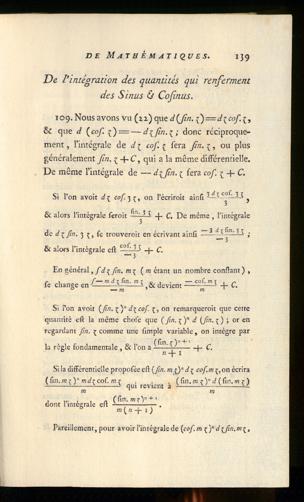 DE MATHÉMATIQUES. 139
De l'intégration des quantités qui renferment
des Sinus & Cosinus.
109. Nous avons vu (22) que d (sin. z) = dz cos. z,
& que d (cos. z) = — dz sin. z; donc réciproque-
ment, l'intégrale de dz cos. z sera sin. z, ou plus
généralement sin. z + C, qui a la même différentielle.
De même l'intégrale de — dz sin. z sera cos. z + C.
Si l'on avoit dz cos. 3z, on l'écriroit ainsi (3 dz cos. 3z)/3,
& alors l'intégrale seroit (sin. 3z)/3 + C. De même, l'intégrale
de dz sin. 3z, se trouveroit en écrivant ainsi (— 3 dz sin. 3z)/— 3;
& alors l'intégrale est (cos. 3z)/— 3 + C.
En général, ∫dz sin. mz (m étant un nombre constant),
se change en (∫— m dz sin. mz)/— m, & devient (— cos. mz)/m + C.
Si l'on avoit (sin. z)ⁿ dz cos. z, on remarqueroit que cette
quantité est la même chose que (sin. z)ⁿ d (sin. z); or en
regardant sin. z comme une simple variable, on intégre par
la règle fondamentale, & l'on a (sin. z)ⁿ⁺¹/(n + 1) + C.
Si la différentielle proposée est (sin. mz)ⁿ dz cos. mz, on écrira
((sin. mz)ⁿ m dz cos. mz)/m qui revient à ((sin. mz)ⁿ d (sin. mz))/m
dont l'intégrale est (sin. mz)ⁿ⁺¹/(m (n + 1)).
Pareillement, pour avoir l'intégrale de (cos. mz)ⁿ dz sin. mz,